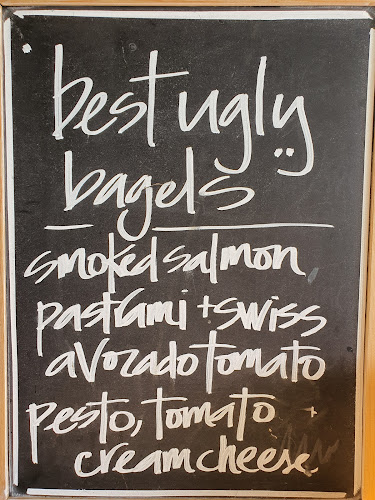 best ugly
bagels
smoked salmon
pastrami + swiss
avozado tomato
pesto, tomato +
creamcheese